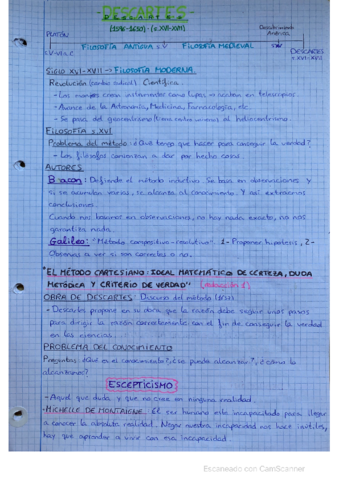 -DESCARTES-
DESCARTES
(1596-1650)-(s.XVI-XVII)
PLATÓN
Descubrimiento
América
FILOSOFÍA ANTIGUA
V
FILOSOFÍA MEDIEVAL
XV
DESCARTES
V-IV a.C
XVI-XVII
SIGLO XVI-XVII → FILOSOFÍA MODERNA
Revolución (cambio radical) Científica
- Avance de la Astronomía, Medicina, Farmacología, etc.
- Se pasa del geocentrismo al heliocentrismo.
FILOSOFÍA s.XVI
Problema del método: ¿Qué tengo que hacer para conseguir la verdad?
- Los filósofos comienzan a dar por hecho cosas.
AUTORES
Bacon: Defiende el método inductivo. Se basa en observaciones y
si se acumulan varias, se alcanza el conocimiento. Y así extraerías
conclusiones.
Cuando nos basamos en observaciones, no hay nada exacto, no nos
garantiza nada.
Galileo: "Método compositivo-resolutivo". 1- Proponer hipótesis, 2-
Observas a ver si son correctas o no.
"EL MÉTODO CARTESIANO: IDEAL MATEMÁTICO DE CERTEZA, DUDA
METÓDICA Y CRITERIO DE VERDAD" (redacción 1)
OBRA DE DESCARTES: Discurso del método (1637)
- Descartes propone en su obra que la razón debe seguir unos pasos
para dirigir la razón correctamente con el fin de conseguir la verdad
en las ciencias.
PROBLEMA DEL CONOCIMIENTO
Preguntas: ¿Qué es el conocimiento?, ¿se puede alcanzar?, ¿cómo la
alcanzamos?
ESCEPTICISMO
- Aquel que duda y que no cree en ninguna realidad.
- MICHELLE DE MONTAIGNE: El ser humano está incapacitado para llegar
a conocer la absoluta realidad. Negar nuestra incapacidad nos hace inútiles,
hay que aprender a vivir con esa incapacidad.
Escaneado con CamScanner